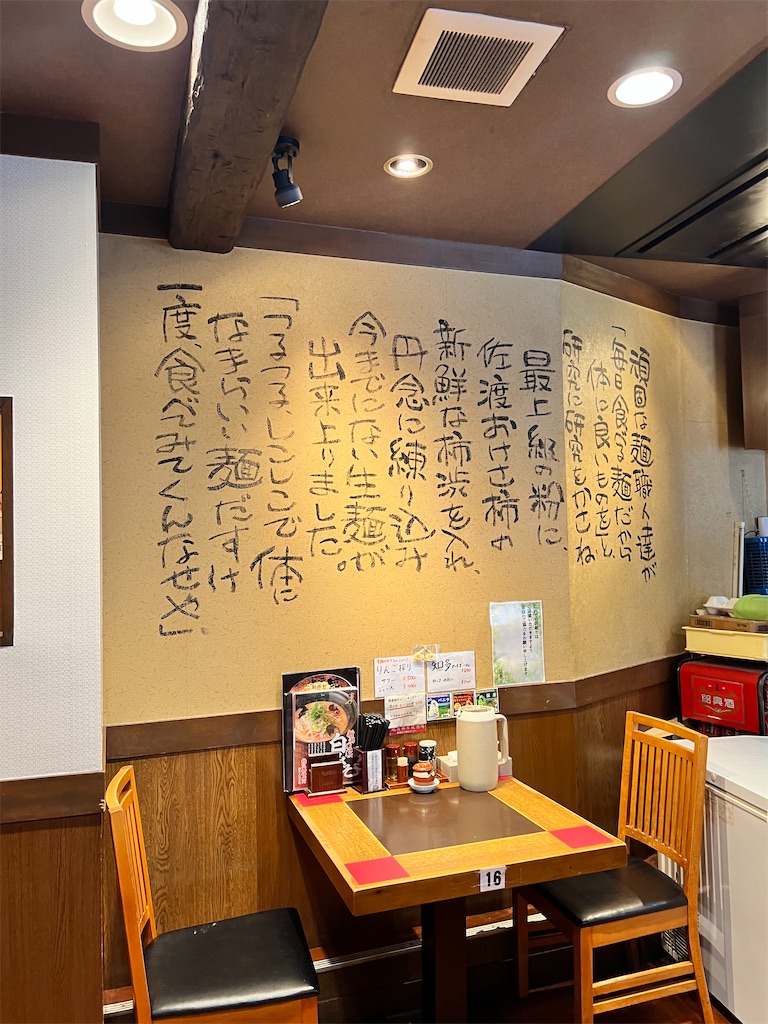 頑固な麺職人達が
「毎日食べる麺だから
体に良いものを」と、
研究に研究をかさね
最上級の粉に、
佐渡おけさ柿の
新鮮な柿渋を入れ、
丹念に練り込み
今までにない生麺が
出来上りました。
「つるつる、しこしこで体に
なまらいい麺だすけ
一度、食べてみてくんなせや」
りんご搾り
サワー
知多
16
紹興酒